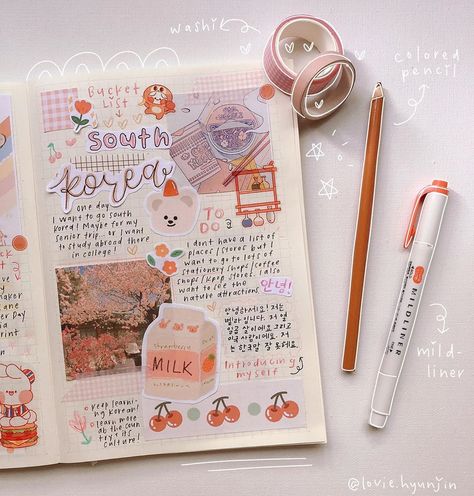 washi
colored
pencil
Bucket
List
south
korea
one day...
I want to go south
korea! Maybe for my
senior trip... or I want
to study abroad there
in college!
TO
DO
I don't have a list of
places/stores but I
want to go lots of
stationery shops/coffee
shops/kpop stores. I also
want to see the
nature attractions.
안녕!
안녕하세요! 저는
입니다. 저
살이에요 그리고
사람이에요. 저
는 한국말 잘 토해요.
Introducing
myself
strawberry
MILK
keep learn-
ing korean!
learn more
ab the coun-
try & its
culture!
MILDLINER
mild-
liner
@lovie.hyunjin